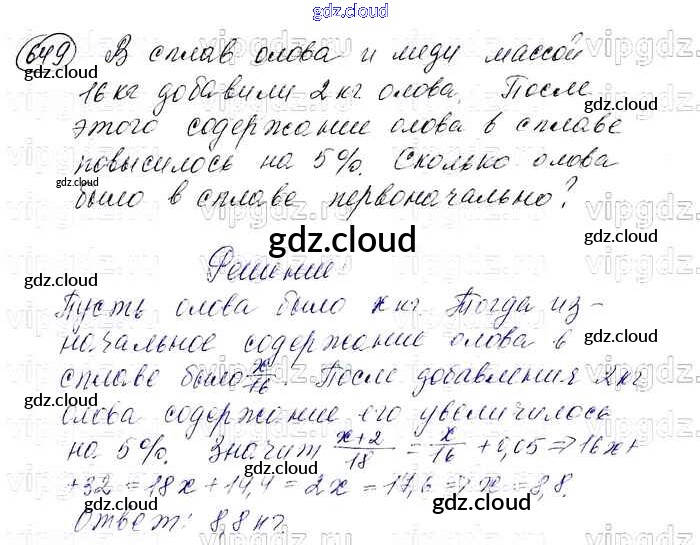 gdz.cloud
649 В сплав олова и меди массой
16 кг добавили 2 кг олова. После
этого содержание олова в сплаве
повысилось на 5%. Сколько олова
было в сплаве первоначально?
gdz.cloud
Решение:
Пусть олова было x кг. Тогда из-
начальное содержание олова в
сплаве было x/16. После добавления 2 кг
олова содержание его увеличилось
на 5%. Значит (x+2)/18 = x/16 + 0,05 ⇒ 16x+
+32 = 18x + 14,4 = 2x = 17,6 ⇒ x = 8,8.
Ответ: 8,8 кг.